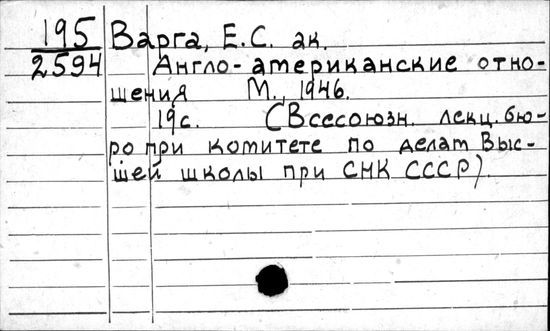 195 Варга, Е.С. ак.
2594 Англо-американские отно-
шения М., 1946.
19с. (Всесоюзн. лекц. бю-
ро при комитете по делам Выс-
шей школы при СНК СССР).